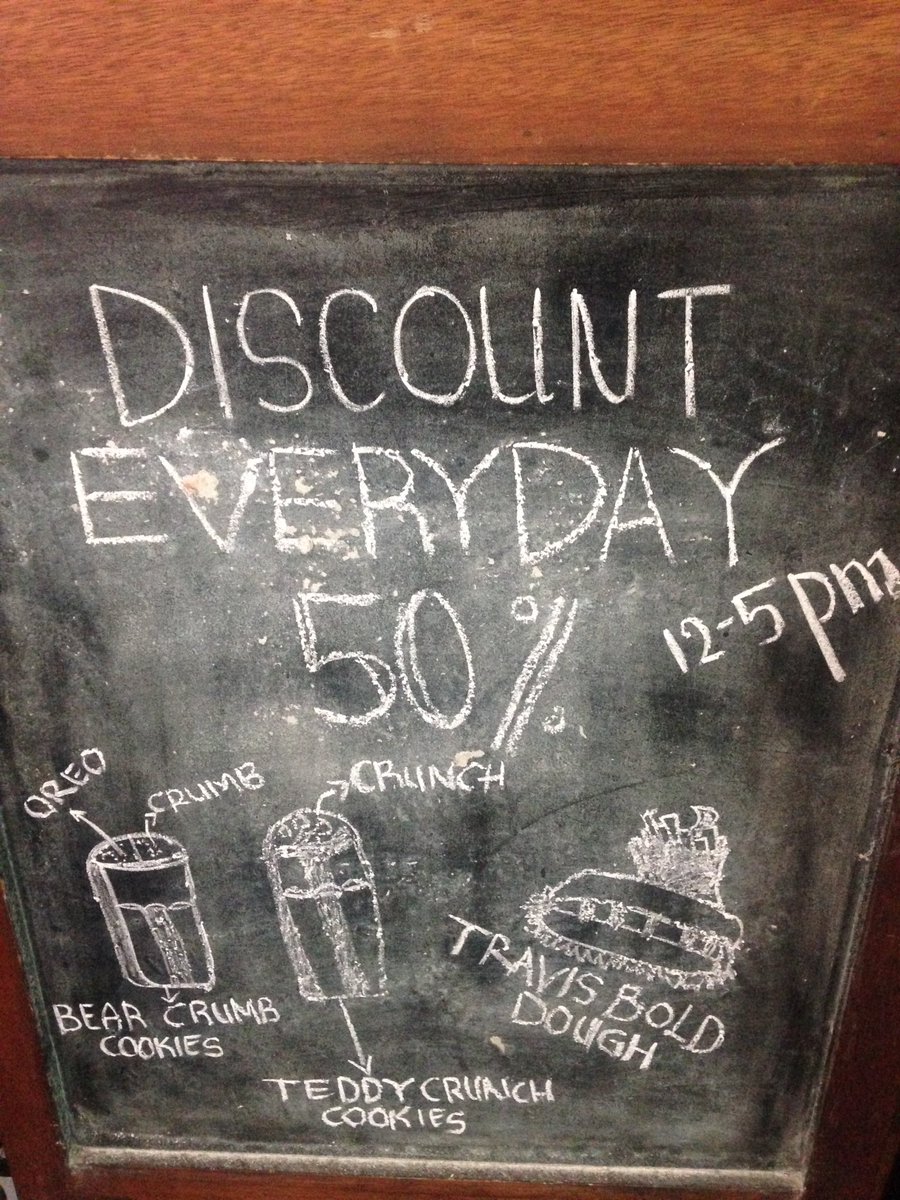 DISCOUNT
EVERYDAY
50%
12-5pm
OREO
CRUMB
CRUNCH
BEAR CRUMB
COOKIES
TEDDY CRUNCH
COOKIES
TRAVIS BOLD
DOUGH